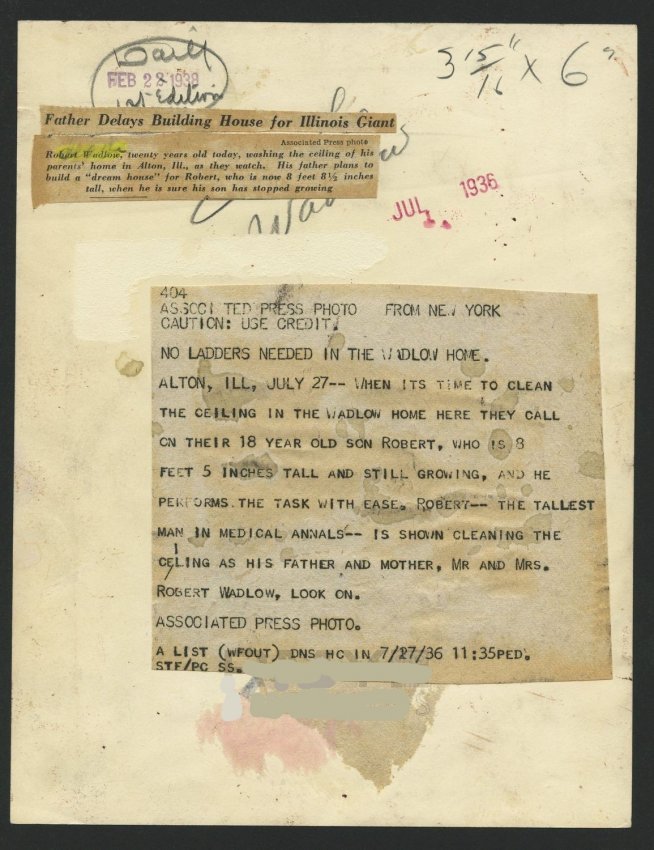 Daily
FEB 22 1938
1st Edition
3 15/16" X 6"
Father Delays Building House for Illinois Giant
Associated Press photo
Robert Wadlow, twenty years old today, washing the ceiling of his
parents' home in Alton, Ill., as they watch. His father plans to
build a "dream house" for Robert, who is now 8 feet 8½ inches
tall, when he is sure his son has stopped growing
JUL 1936
404
ASSOCI TED PRESS PHOTO FROM NEW YORK
CAUTION: USE CREDIT.
NO LADDERS NEEDED IN THE WADLOW HOME.
ALTON, ILL, JULY 27-- WHEN ITS TIME TO CLEAN
THE CEILING IN THE WADLOW HOME HERE THEY CALL
ON THEIR 18 YEAR OLD SON ROBERT, WHO IS 8
FEET 5 INCHES TALL AND STILL GROWING, AND HE
PERFORMS THE TASK WITH EASE. ROBERT-- THE TALLEST
MAN IN MEDICAL ANNALS-- IS SHOWN CLEANING THE
CEILING AS HIS FATHER AND MOTHER, MR AND MRS.
ROBERT WADLOW, LOOK ON.
ASSOCIATED PRESS PHOTO.
A LIST (WFOUT) DNS HC IN 7/27/36 11:35PED.
STF/PG SS.